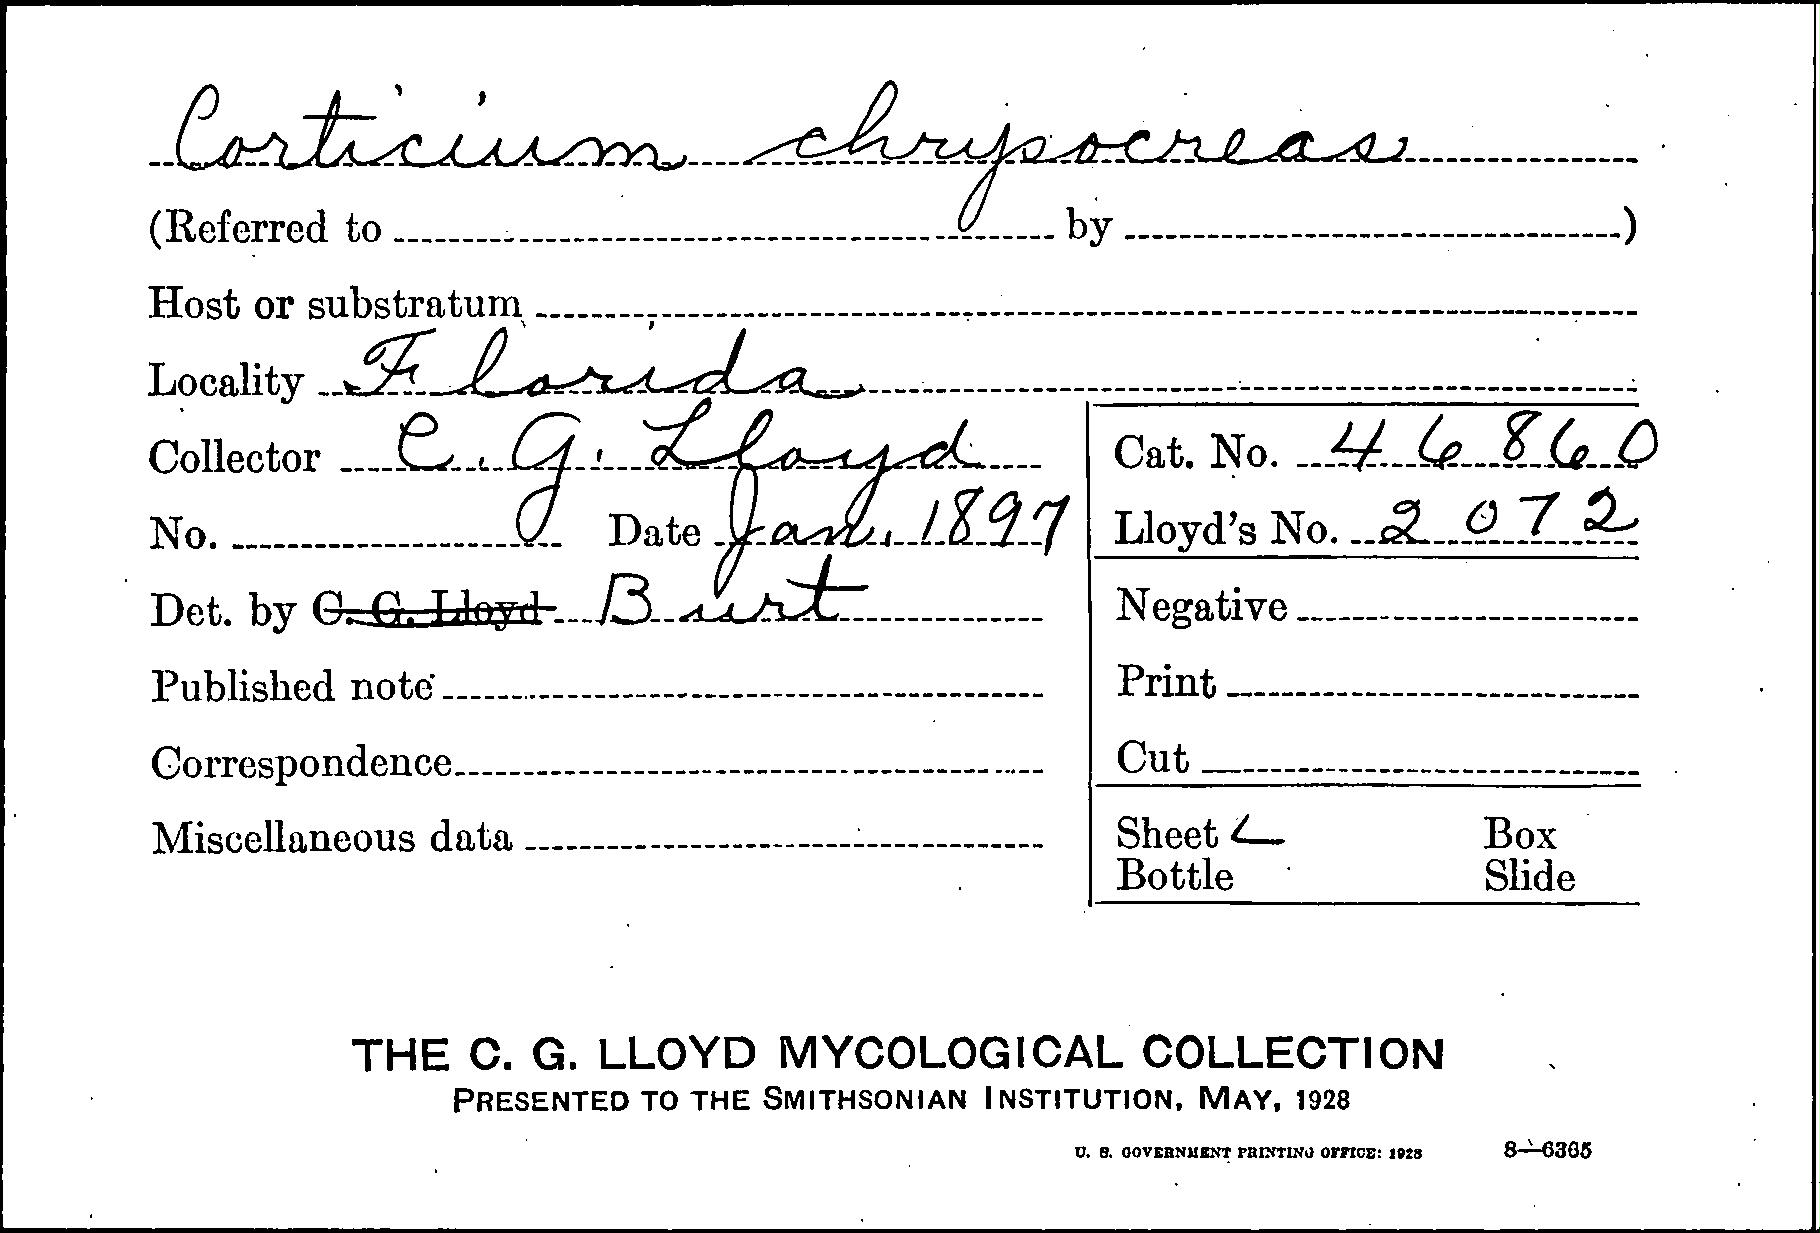 Corticium chrysocreas
(Referred to by )
Host or substratum
Locality Florida
Collector C. G. Lloyd
No. Date Jan. 1897
Det. by C. G. Lloyd Burt
Published note
Correspondence
Miscellaneous data
Cat. No. 46860
Lloyd's No. 2072
Negative
Print
Cut
Sheet Box
Bottle Slide
THE C. G. LLOYD MYCOLOGICAL COLLECTION
PRESENTED TO THE SMITHSONIAN INSTITUTION, MAY, 1928
U. S. GOVERNMENT PRINTING OFFICE: 1928 8—6365